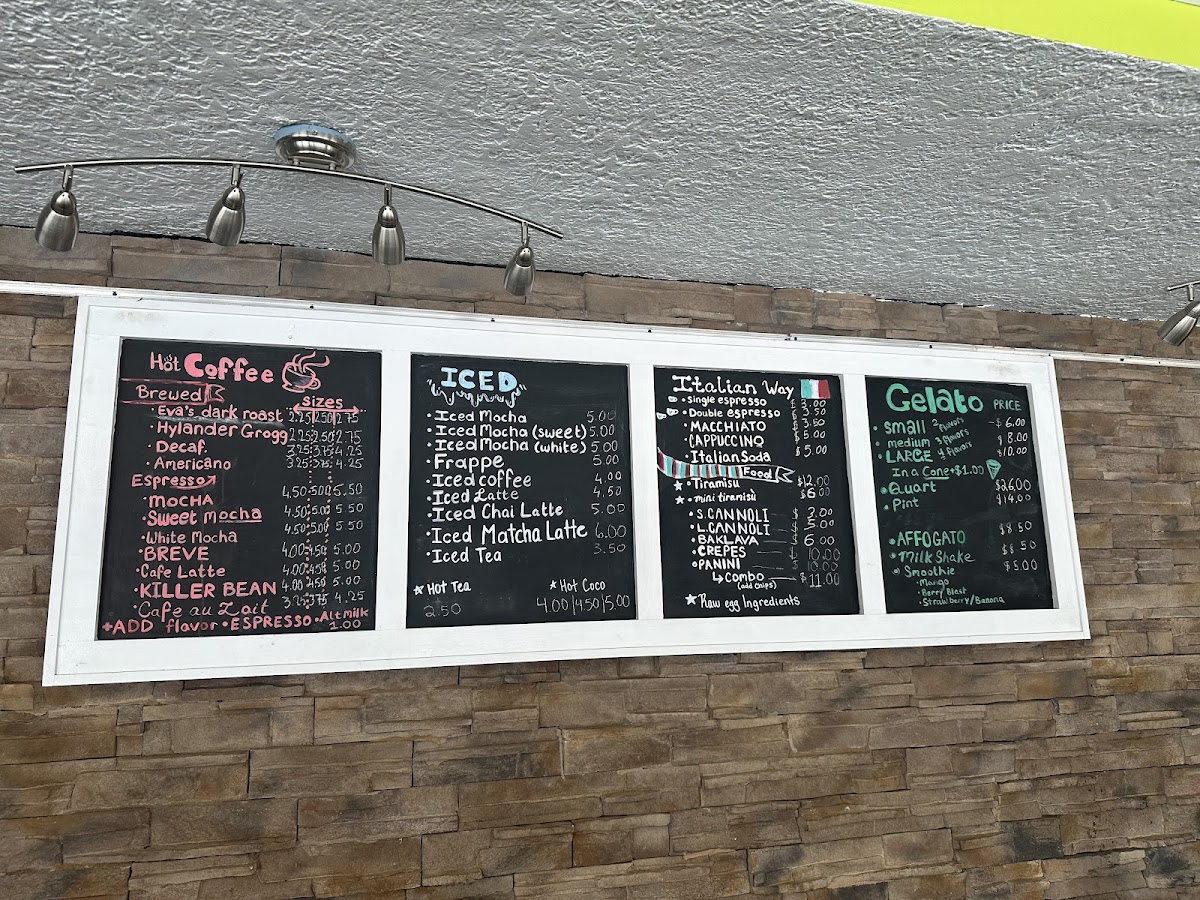 Hot Coffee
Brewed
sizes
• Eva's dark roast 2.25 2.50 2.75
• Hylander Grogg 2.25 2.50 2.75
• Decaf. 3.25 3.75 4.25
• Americano 3.25 3.75 4.25
Espresso
• MOCHA 4.50 5.00 5.50
• Sweet Mocha 4.50 5.00 5.50
• White Mocha 4.50 5.00 5.50
• BREVE 4.00 4.50 5.00
• Cafe Latte 4.00 4.50 5.00
• KILLER BEAN 4.00 4.50 5.00
• Cafe au Lait 3.25 3.75 4.25
+ADD flavor • ESPRESSO • Alt Milk 1.00
ICED
• Iced Mocha 5.00
• Iced Mocha (sweet) 5.00
• Iced Mocha (white) 5.00
• Frappe 5.00
• Iced coffee 4.00
• Iced Latte 4.50
• Iced Chai Latte 5.00
• Iced Matcha Latte 6.00
• Iced Tea 3.50
★ Hot Tea
2.50
★ Hot Coco
4.00 4.50 5.00
Italian Way
• single espresso
• Double espresso $3.50
• MACCHIATO $3.50
• CAPPUCCINO $5.00
• Italian Soda $5.00
Food
★ • Tiramisu $12.00
★ • mini tiramisù $6.00
• S.CANNOLI
• L.CANNOLI 5.00
• BAKLAVA $6.00
• CREPES $10.00
• PANINI $10.00
↳ combo $11.00
(add chips)
★ Raw egg Ingredients
Gelato PRICE
• small 2 flavors - $6.00
• medium 3 flavors $8.00
• LARGE 4 flavors $10.00
In a Cone +$1.00
• Quart $26.00
• Pint $14.00
• AFFOGATO $8.50
• Milk Shake $8.50
• Smoothie $5.00
• Mango
• Berry Blast
• Strawberry/Banana